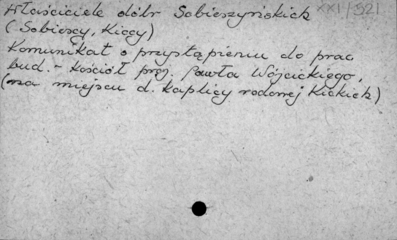 Właściciele dóbr Sobieszyńskich XXI/321
(Sobiescy, Kiccy)
Komunikat o przystąpieniu do prac
bud. - Kościół proj. Pawła Wójcickiego,
(na miejscu d. Kaplicy rodowej Kickich)